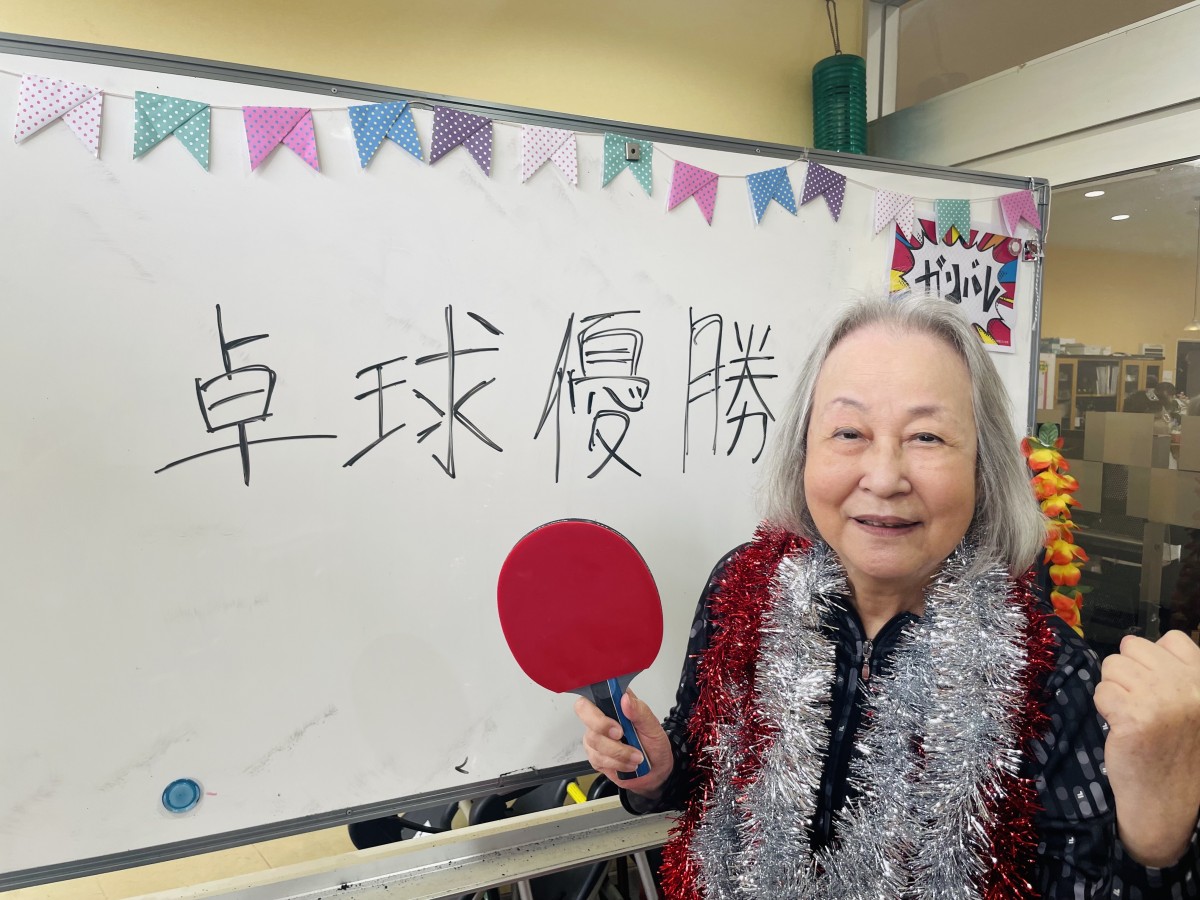 卓球優勝
ガンバレ